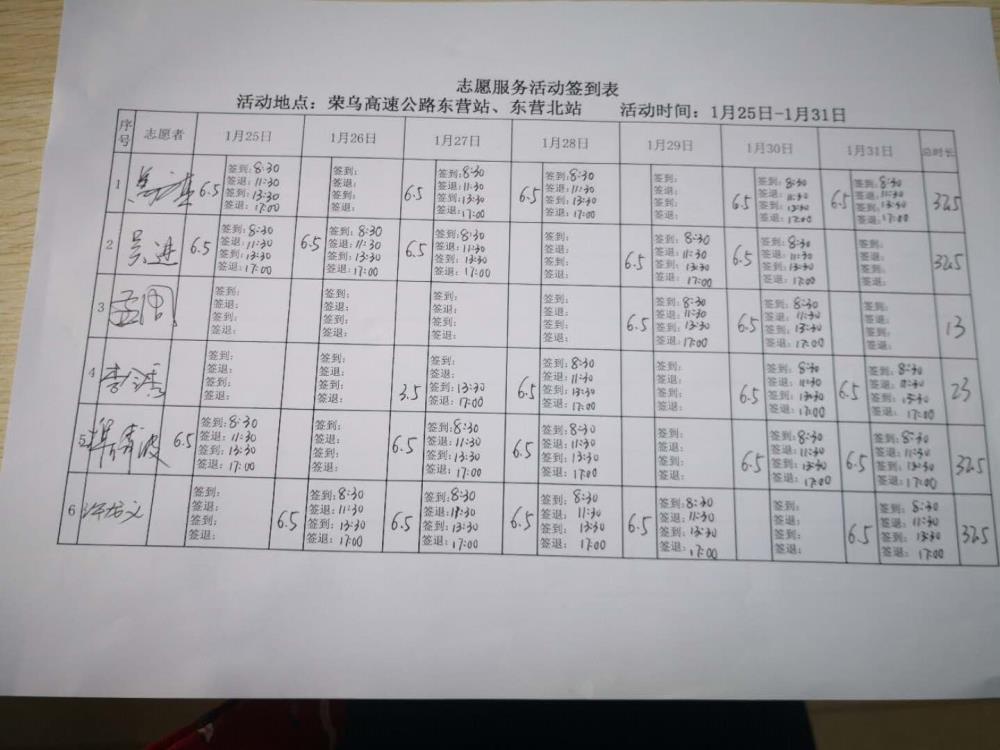 志愿服务活动签到表
活动地点：荣乌高速公路东营站、东营北站 活动时间：1月25日-1月31日
序号 志愿者 1月25日 1月26日 1月27日 1月28日 1月29日 1月30日 1月31日 总时长
1 6.5 签到：8:30 签到： 6.5 签到：8:30 6.5 签到：8:30 签到： 6.5 签到：8:30 6.5 签到：8:30 32.5
签退：11:30 签退： 签退：11:30 签退：11:30 签退： 签退：11:30 签退：11:30
签到：13:30 签到： 签到：13:30 签到：13:30 签到： 签到：13:30 签到：13:30
签退：17:00 签退： 签退：17:00 签退：17:00 签退： 签退：17:00 签退：17:00
2 吴进 6.5 签到：8:30 6.5 签到：8:30 6.5 签到：8:30 签到： 6.5 签到：8:30 6.5 签到：8:30 签到： 32.5
签退：11:30 签退：11:30 签退：11:30 签退： 签退：11:30 签退：11:30 签退：
签到：13:30 签到：13:30 签到：13:30 签到： 签到：13:30 签到：13:30 签到：
签退：17:00 签退：17:00 签退：17:00 签退： 签退：17:00 签退：17:00 签退：
3 签到： 签到： 签到： 签到： 6.5 签到：8:30 6.5 签到：8:30 签到： 13
签退： 签退： 签退： 签退： 签退：11:30 签退：11:30 签退：
签到： 签到： 签到： 签到： 签到：13:30 签到：13:30 签到：
签退： 签退： 签退： 签退： 签退：17:00 签退：17:00 签退：
4 签到： 签到： 3.5 签到： 6.5 签到：8:30 签到： 6.5 签到：8:30 6.5 签到：8:30 23
签退： 签退： 签退： 签退：11:30 签退： 签退：11:30 签退：11:30
签到： 签到： 签到：13:30 签到：13:30 签到： 签到：13:30 签到：13:30
签退： 签退： 签退：17:00 签退：17:00 签退： 签退：17:00 签退：17:00
5 6.5 签到：8:30 签到： 6.5 签到：8:30 6.5 签到：8:30 签到： 6.5 签到：8:30 6.5 签到：8:30 32.5
签退：11:30 签退： 签退：11:30 签退：11:30 签退： 签退：11:30 签退：11:30
签到：13:30 签到： 签到：13:30 签到：13:30 签到： 签到：13:30 签到：13:30
签退：17:00 签退： 签退：17:00 签退：17:00 签退： 签退：17:00 签退：17:00
6 签到： 6.5 签到：8:30 6.5 签到：8:30 6.5 签到：8:30 6.5 签到：8:30 签到： 6.5 签到：8:30 32.5
签退： 签退：11:30 签退：11:30 签退：11:30 签退：11:30 签退： 签退：11:30
签到： 签到：13:30 签到：13:30 签到：13:30 签到：13:30 签到： 签到：13:30
签退： 签退：17:00 签退：17:00 签退：17:00 签退：17:00 签退： 签退：17:00